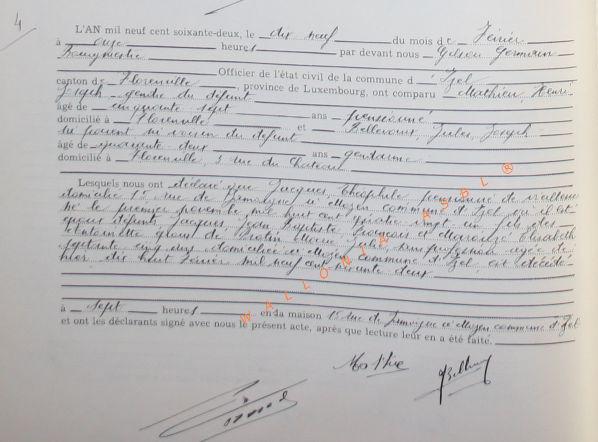 4
L'AN mil neuf cent soixante-deux, le dix neuf du mois de Février
à onze heures par devant nous Gelson Germain
Bourgmestre
Officier de l'état civil de la commune d'Izel
canton de Florenville, province de Luxembourg, ont comparu Mathieu, Henri
Joseph gendre du défunt
âgé de cinquante sept ans pensionné
domicilié à Florenville et Bellevaux, Jules, Joseph
ni parent ni voisin du défunt
âgé de quarante deux ans gendarme
domicilié à Florenville, 3 rue du Chateau
Lesquels nous ont déclaré que Jacques, Théophile pensionné de vieillesse
domicilié 15 rue de Jamoigne à Moyen commune d'Izel où il est
né le premier novembre mil huit cent quatre vingt un fils des
époux défunts Jacques, Jean Baptiste François et Elisabeth
époux de Robin Marie âgée de
septante cinq ans domiciliée à Moyen commune d'Izel, est décédé
hier dix huit Février mil neuf cent soixante deux
à sept heures en la maison 15 rue de Jamoigne à Moyen commune d'Izel
et ont les déclarants signé avec nous le présent acte, après que lecture leur en a été faite.
WALLONIA ASBL ®